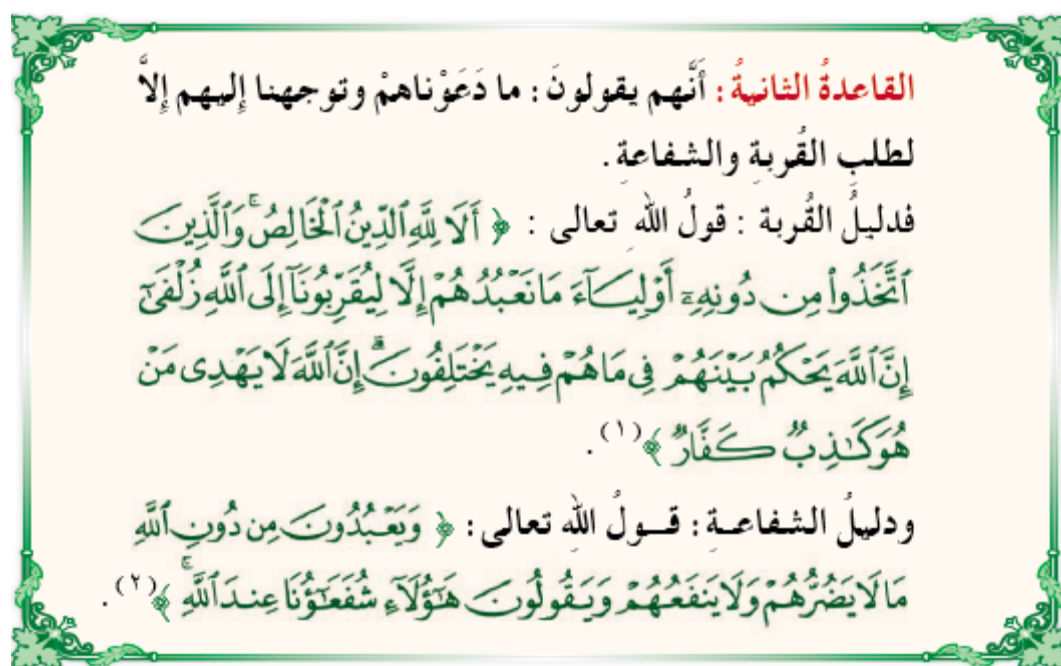 القاعدةُ الثانيةُ : أَنَّهم يقولونَ : ما دَعَوْناهمْ وتوجهنا إِليهم إِلاَّ
لطلبِ القُربةِ والشفاعةِ .
فدليلُ القُربة : قولُ اللهِ تعالى : ﴿ أَلَا لِلَّهِ ٱلدِّينُ ٱلْخَالِصُ ۚ وَٱلَّذِينَ
ٱتَّخَذُوا۟ مِن دُونِهِۦٓ أَوْلِيَآءَ مَا نَعْبُدُهُمْ إِلَّا لِيُقَرِّبُونَآ إِلَى ٱللَّهِ زُلْفَىٰٓ
إِنَّ ٱللَّهَ يَحْكُمُ بَيْنَهُمْ فِى مَا هُمْ فِيهِ يَخْتَلِفُونَ ۗ إِنَّ ٱللَّهَ لَا يَهْدِى مَنْ
هُوَ كَـٰذِبٌ كَفَّارٌ ﴾(١) .
ودليلُ الشفاعـة : قـولُ اللهِ تعالى : ﴿ وَيَعْبُدُونَ مِن دُونِ ٱللَّهِ
مَا لَا يَضُرُّهُمْ وَلَا يَنفَعُهُمْ وَيَقُولُونَ هَـٰٓؤُلَآءِ شُفَعَـٰٓؤُنَا عِندَ ٱللَّهِ ۚ ﴾(٢) .